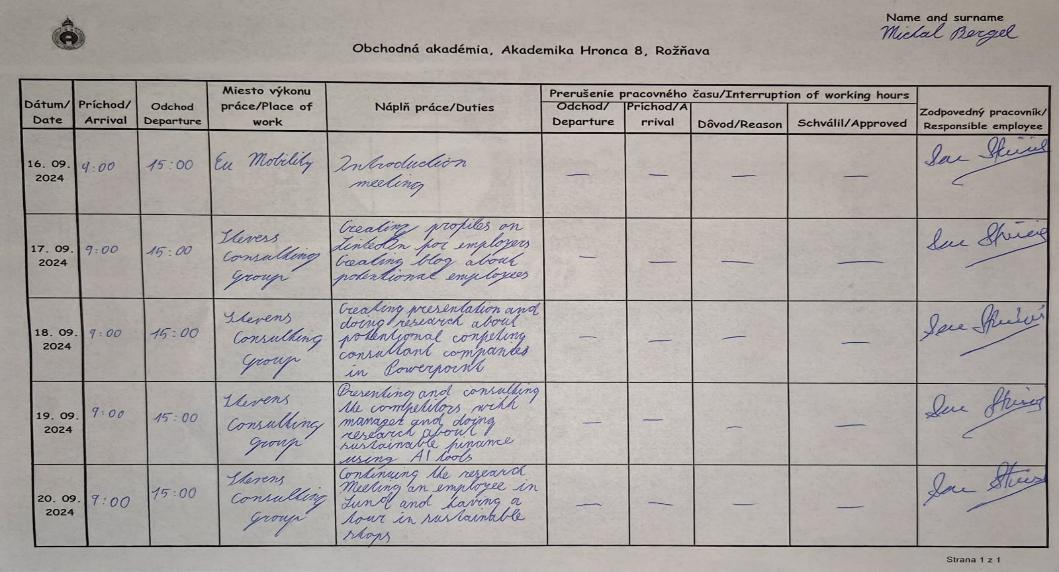 Name and surname
Michal Bergel
Obchodná akadémia, Akademika Hronca 8, Rožňava
Dátum/ Date
Príchod/ Arrival
Odchod Departure
Miesto výkonu práce/Place of work
Náplň práce/Duties
Prerušenie pracovného času/Interruption of working hours
Odchod/ Departure
Príchod/A rrival
Dôvod/Reason
Schválil/Approved
Zodpovedný pracovník/ Responsible employee
16. 09. 2024
9:00
15:00
Eu Mobility
Introduction
meeting
— — — —
17. 09. 2024
9:00
15:00
Stevens
Consulting
Group
Creating profiles on
LinkedIn for employers
Creating blog about
potentional employees
— — — —
18. 09. 2024
9:00
15:00
Stevens
Consulting
Group
Creating presentation and
doing research about
potentional competing
consultant companies
in Powerpoint
— — — —
19. 09. 2024
9:00
15:00
Stevens
Consulting
Group
Presenting and consulting
the competitors with
manager and doing
research about
sustainable finance
using AI tools
— — — —
20. 09. 2024
9:00
15:00
Stevens
Consulting
Group
Continuing the research
Meeting an employee in
Lund and having a
tour in sustainable
shops
— — — —
Strana 1 z 1